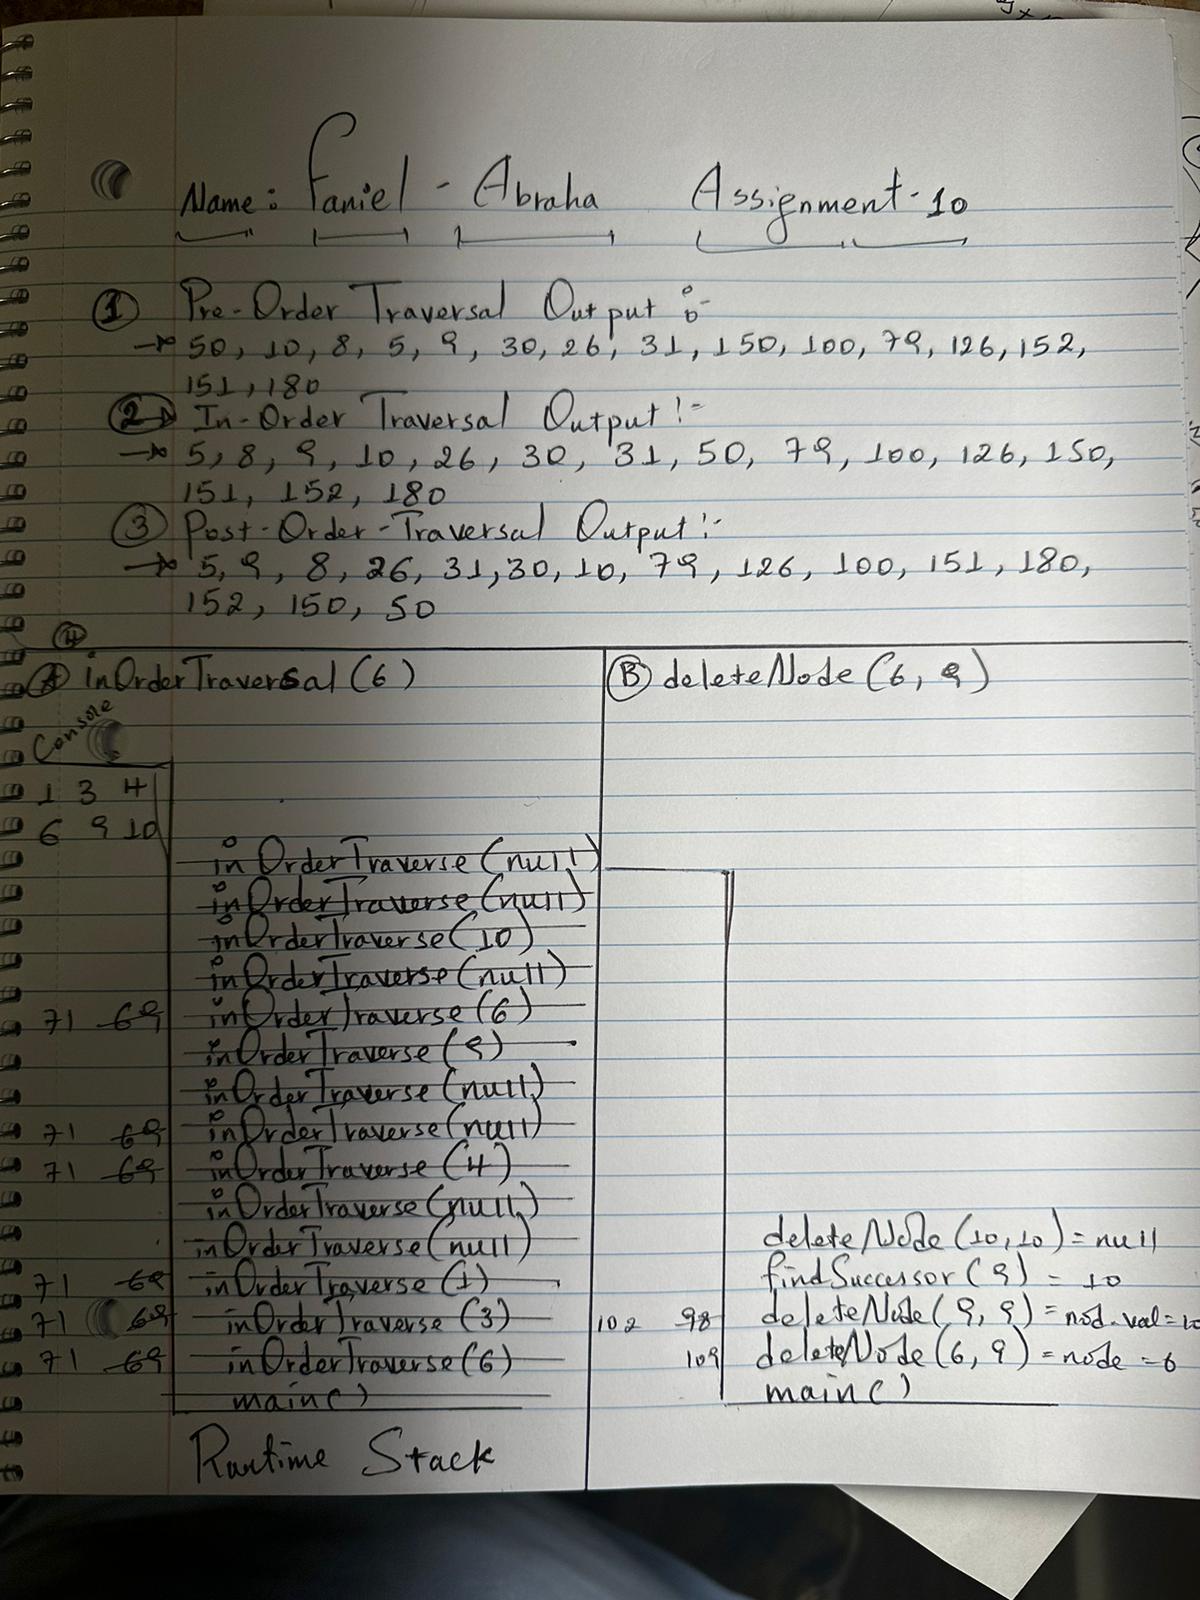 Name: Faniel - Abraha Assignment-10
① Pre-Order Traversal Output :-
→ 50, 10, 8, 5, 9, 30, 26, 31, 150, 100, 79, 126, 152,
151, 180
② In-Order Traversal Output :-
→ 5, 8, 9, 10, 26, 30, 31, 50, 79, 100, 126, 150,
151, 152, 180
③ Post-Order-Traversal Output :-
→ 5, 9, 8, 26, 31, 30, 10, 79, 126, 100, 151, 180,
152, 150, 50
④
Ⓐ inOrderTraversal(6)
Console
1 3 4
6 9 10
inOrderTraverse(null)
inOrderTraverse(null)
inOrderTraverse(10)
inOrderTraverse(null)
71 69 inOrderTraverse(6)
inOrderTraverse(9)
inOrderTraverse(null)
71 69 inOrderTraverse(null)
71 69 inOrderTraverse(4)
inOrderTraverse(null)
inOrderTraverse(null)
71 69 inOrderTraverse(1)
71 69 inOrderTraverse(3)
71 69 inOrderTraverse(6)
main()
Runtime Stack
Ⓑ deleteNode(6, 9)
deleteNode(10,10) = null
findSuccessor(9) = 10
102 98 deleteNode(9, 9) = nod.val=10
109 deleteNode(6, 9) = node = 6
main()